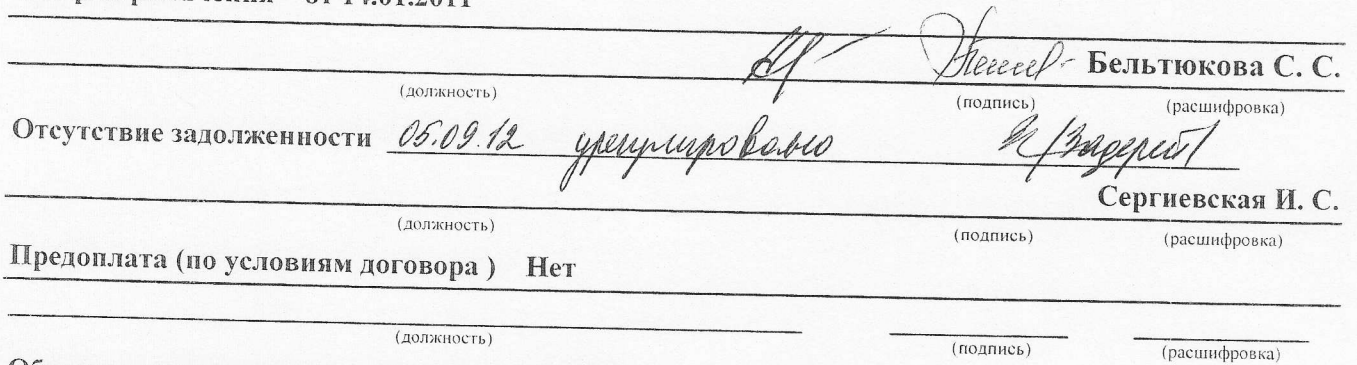 от 14.01.2011
Бельтюкова С. С.
(должность) (подпись) (расшифровка)
Отсутствие задолженности 05.09.12 урегулировано /Задерей/
Сергиевская И. С.
(должность) (подпись) (расшифровка)
Предоплата (по условиям договора ) Нет
(должность) (подпись) (расшифровка)